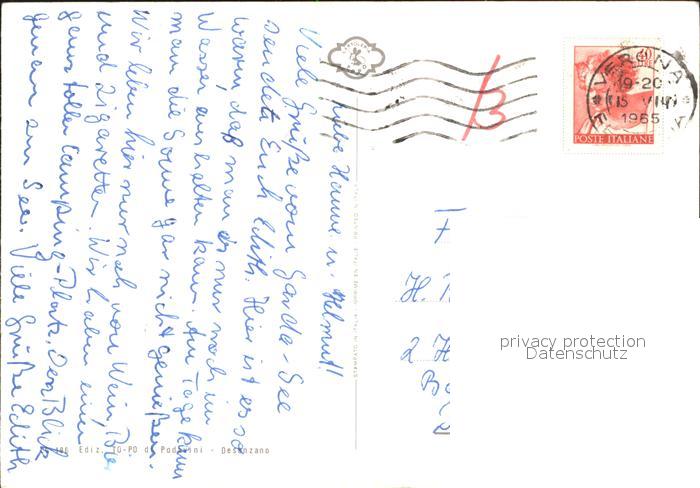 Liebe Hanne u. Helmut!
Viele Grüße vom Garda-See
sendet Euch Edith. Hier ist es so
warm, daß man es nur noch im
Wasser aushalten kann. Am Tage kann
man die Sonne gar nicht genießen.
Wir leben hier nur noch von Wein, Bier
und Zigaretten. Wir haben einen
ganz tollen Camping-Platz. Der Blick
genau zum See. Viele Grüße Edith
VERONA
19-20
15 VIII
1965
POSTE ITALIANE
H.
2 H
privacy protection
Datenschutz
Ediz. TO-PO di Podavini - Desenzano